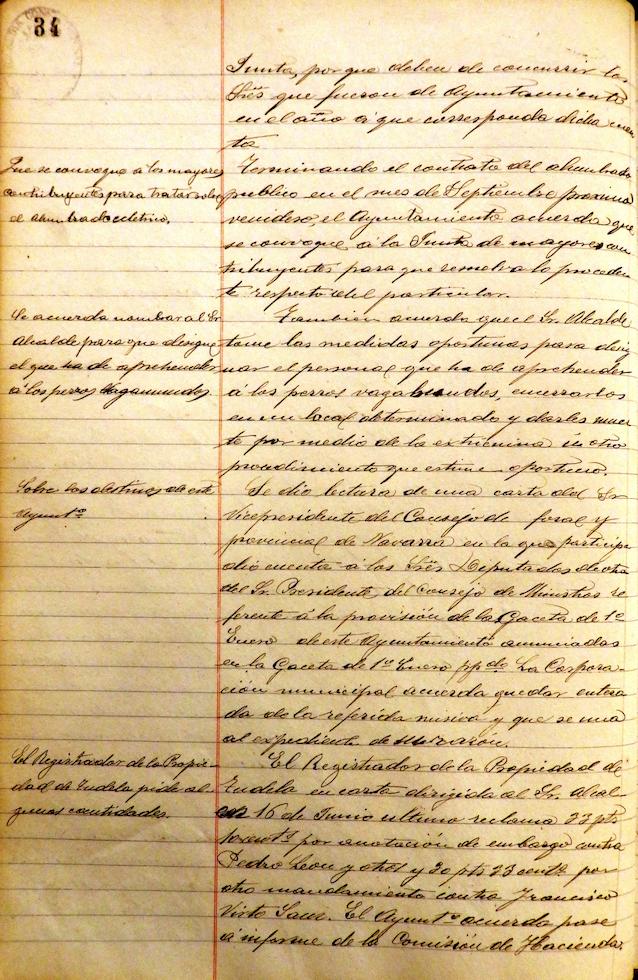 34
Junta, por que deben de concurrir los
Srēs que fueron de Ayuntamiento
en el año á que corresponda dicha cuen
ta
Que se convoque á los mayores
contribuyentes para tratar sobre
el alumbrado eletrico.
Terminando el contrato del alumbrado
publico en el mes de Septiembre proximo
venidero, el Ayuntamiento acuerda que
se convoque á la Junta de mayores con
tribuyentes para que resuelva lo proceden
te respecto del particular.
Se acuerda nombrar al Sr
Alcalde para que designe
el que ha de aprehender
á los perros vagamundos.
Tambien acuerda que el Sr. Alcalde
tome las medidas oportunas para desig
nar el personal que ha de aprehender
á los perros vagabundos, encerrarlos
en un local determinado y darles muer
te por medio de la extricnina ú otro
procedimiento que estime oportuno.
Sobre los destinos de este
Ayuntº
Se dió lectura de una carta del Sr
Vicepresidente del Consejo de foral y
provincial de Navarra en la que participa
dió cuenta á los Srēs Deputados de otra
del Sr. Presidente del Consejo de Ministros re
ferente á la provisión de la Gaceta de 1º
Enero de este Ayuntamiento anunciadas
en la Gaceta de 1º Enero pp.do La Corpora
ción municipal acuerda quedar entera
da de la referida misiva y que se una
al expediente de su razón.
El Registrador de la Propie-
dad de Tudela pide al
gunas cantidades.
El Registrador de la Propiedad de
Tudela en carta dirigida al Sr. Alcal
en 16 de Junio ultimo reclama 23 pts
por anotación de embargo contra
Pedro Leon y otros y 20 pts 23 cents por
otro mandamiento contra Francisco
Virto Sanz. El Ayuntº acuerda pase
á informe de la Comisión de Hacienda.